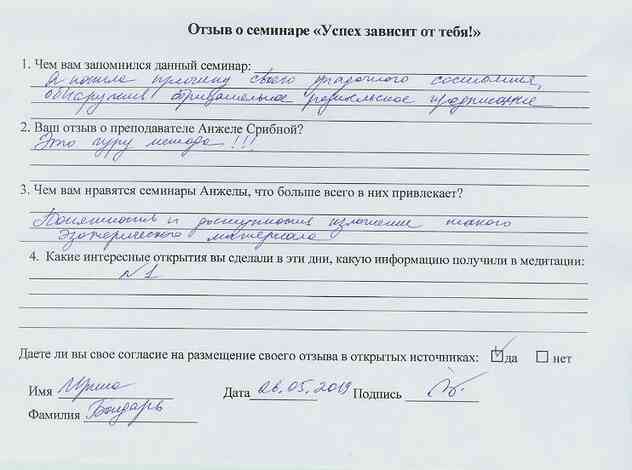 Отзыв о семинаре «Успех зависит от тебя!»
1. Чем вам запомнился данный семинар:
Я нашла причину своего упадочного состояния,
обнаружив отрицательное родительское предписание
2. Ваш отзыв о преподавателе Анжеле Срибной?
Это гуру метода !!!
3. Чем вам нравятся семинары Анжелы, что больше всего в них привлекает?
Понятность и доступность изложения такого
Эзотерического материала
4. Какие интересные открытия вы сделали в эти дни, какую информацию получили в медитации:
№1
Даете ли вы свое согласие на размещение своего отзыва в открытых источниках: да нет
Имя Ирина Дата 26.05.2019 Подпись
Фамилия Бондарь